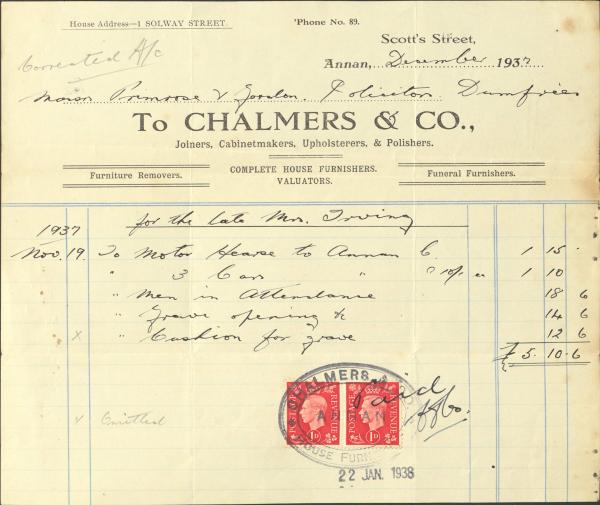 House Address—1 SOLWAY STREET.
'Phone No. 89.
Scott's Street,
Corrected A/c
Annan, December 1937
Messrs Primrose & Gordon. Solicitors. Dumfries
To CHALMERS & CO.,
Joiners, Cabinetmakers, Upholsterers, & Polishers.
Furniture Removers.
COMPLETE HOUSE FURNISHERS.
VALUATORS.
Funeral Furnishers.
for the late Mrs. Irving
1937
Nov. 19. To Motor Hearse to Annan C. 1 15 .
" 3 Cars " @ 10/- ea 1 10
" Men in Attendance 18 6
" Grave opening &c 14 6
x " Cushion for grave 12 6
£ 5. 10. 6
x omitted
CHALMERS &
Paid
ANNAN
POSTAGE REVENUE 1D
POSTAGE REVENUE 1D
HOUSE FURN
22 JAN. 1938